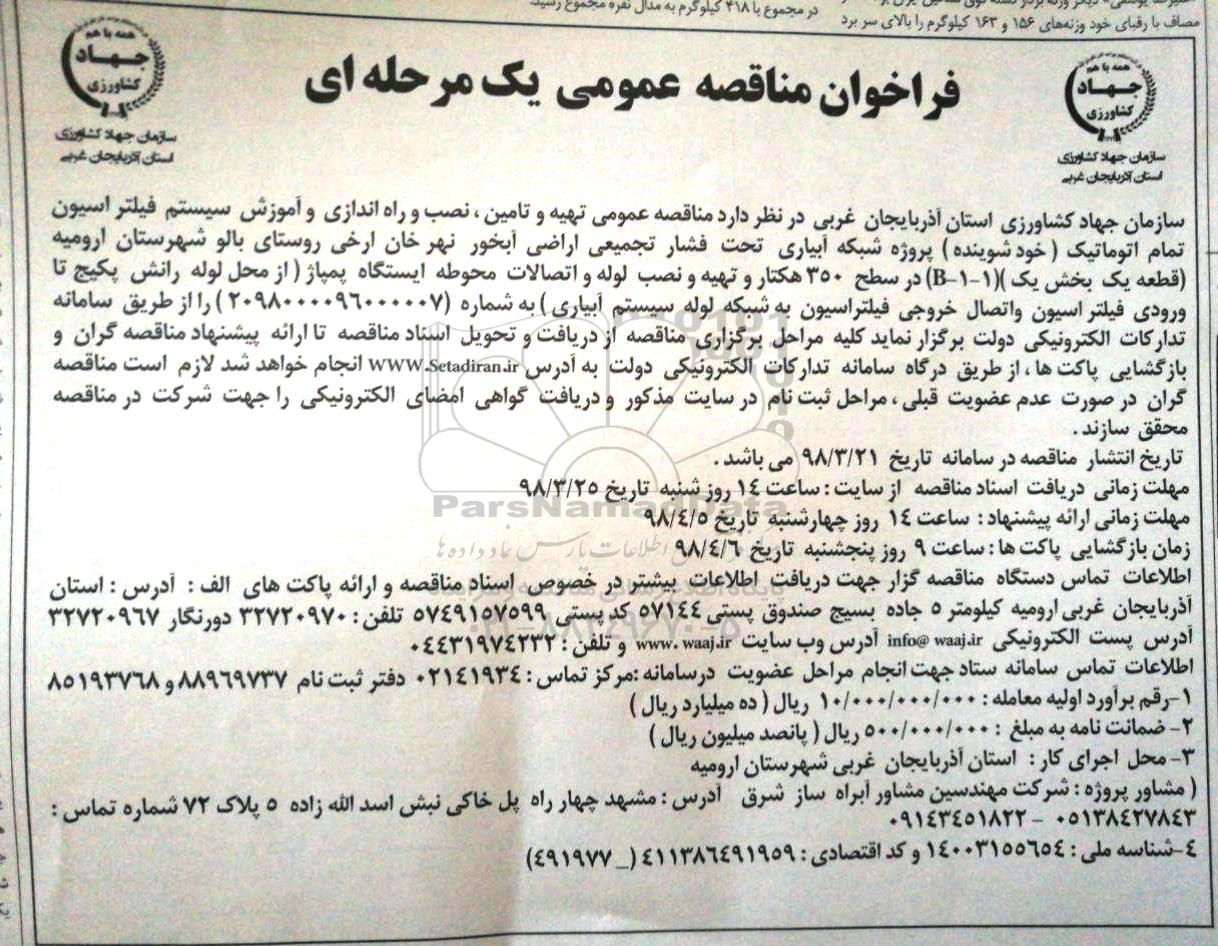 در مجموع با ۴۱۸ کیلوگرم به مدال نقره مجموع رسید.
مصاف با رقبای خود وزنه‌های ۱۵۶ و ۱۶۳ کیلوگرم را بالای سر برد
همه با هم
جهاد
کشاورزی
سازمان جهاد کشاورزی
استان آذربایجان غربی
فراخوان مناقصه عمومی یک مرحله ای
همه با هم
جهاد
کشاورزی
سازمان جهاد کشاورزی
استان آذربایجان غربی
سازمان جهاد کشاورزی استان آذربایجان غربی در نظر دارد مناقصه عمومی تهیه و تامین ، نصب و راه اندازی و آموزش سیستم فیلتر اسیون
تمام اتوماتیک ( خود شوینده ) پروژه شبکه آبیاری تحت فشار تجمیعی اراضی آبخور نهر خان ارخی روستای بالو شهرستان ارومیه
(قطعه یک بخش یک )(B-۱-۱) در سطح ۳۵۰ هکتار و تهیه و نصب لوله و اتصالات محوطه ایستگاه پمپاژ ( از محل لوله رانش پکیج تا
ورودی فیلتر اسیون واتصال خروجی فیلتراسیون به شبکه لوله سیستم آبیاری ) به شماره (۲۰۹۸۰۰۰۰۹۶۰۰۰۰۰۷ ) را از طریق سامانه
تدارکات الکترونیکی دولت برگزار نماید کلیه مراحل برگزاری مناقصه از دریافت و تحویل اسناد مناقصه تا ارائه پیشنهاد مناقصه گران و
بازگشایی پاکت ها ، از طریق درگاه سامانه تدارکات الکترونیکی دولت به آدرس WWW.Setadiran.ir انجام خواهد شد لازم است مناقصه
گران در صورت عدم عضویت قبلی ، مراحل ثبت نام در سایت مذکور و دریافت گواهی امضای الکترونیکی را جهت شرکت در مناقصه
محقق سازند .
تاریخ انتشار مناقصه در سامانه تاریخ ۹۸/۳/۲۱ می باشد .
مهلت زمانی دریافت اسناد مناقصه از سایت : ساعت ۱۴ روز شنبه تاریخ ۹۸/۳/۲۵
ParsNamadData
مهلت زمانی ارائه پیشنهاد : ساعت ۱۴ روز چهارشنبه تاریخ ۹۸/۴/۵
زمان بازگشایی پاکت ها : ساعت ۹ روز پنجشنبه تاریخ ۹۸/۴/۶
اطلاعات تماس دستگاه مناقصه گزار جهت دریافت اطلاعات بیشتر در خصوص اسناد مناقصه و ارائه پاکت های الف : آدرس : استان
آذربایجان غربی ارومیه کیلومتر ۵ جاده بسیج صندوق پستی ۵۷۱۴۴ کد پستی ۵۷۴۹۱۵۷۵۹۹ تلفن : ۳۲۷۲۰۹۷۰ دورنگار ۳۲۷۲۰۹۶۷
آدرس پست الکترونیکی info@ waaj.ir آدرس وب سایت www. waaj.ir و تلفن : ۰۴۴۳۱۹۷۴۲۳۲
اطلاعات تماس سامانه ستاد جهت انجام مراحل عضویت درسامانه :مرکز تماس : ۰۲۱۴۱۹۳۴ دفتر ثبت نام ۸۸۹۶۹۷۳۷ و ۸۵۱۹۳۷۶۸
۱-رقم برآورد اولیه معامله : ۱۰/۰۰۰/۰۰۰/۰۰۰ ریال ( ده میلیارد ریال )
۲- ضمانت نامه به مبلغ : ۵۰۰/۰۰۰/۰۰۰ ریال ( پانصد میلیون ریال )
۳- محل اجرای کار : استان آذربایجان غربی شهرستان ارومیه
( مشاور پروژه : شرکت مهندسین مشاور آبراه ساز شرق آدرس : مشهد چهار راه پل خاکی نبش اسد الله زاده ۵ پلاک ۷۲ شماره تماس :
۰۵۱۳۸۴۲۷۸۴۳ – ۰۹۱۴۳۴۵۱۸۲۲
۴-شناسه ملی : ۱۴۰۰۳۱۵۵۶۵۴ و کد اقتصادی : ۴۱۱۳۸۶۴۹۱۹۵۹ (_ ۴۹۱۹۷۷)